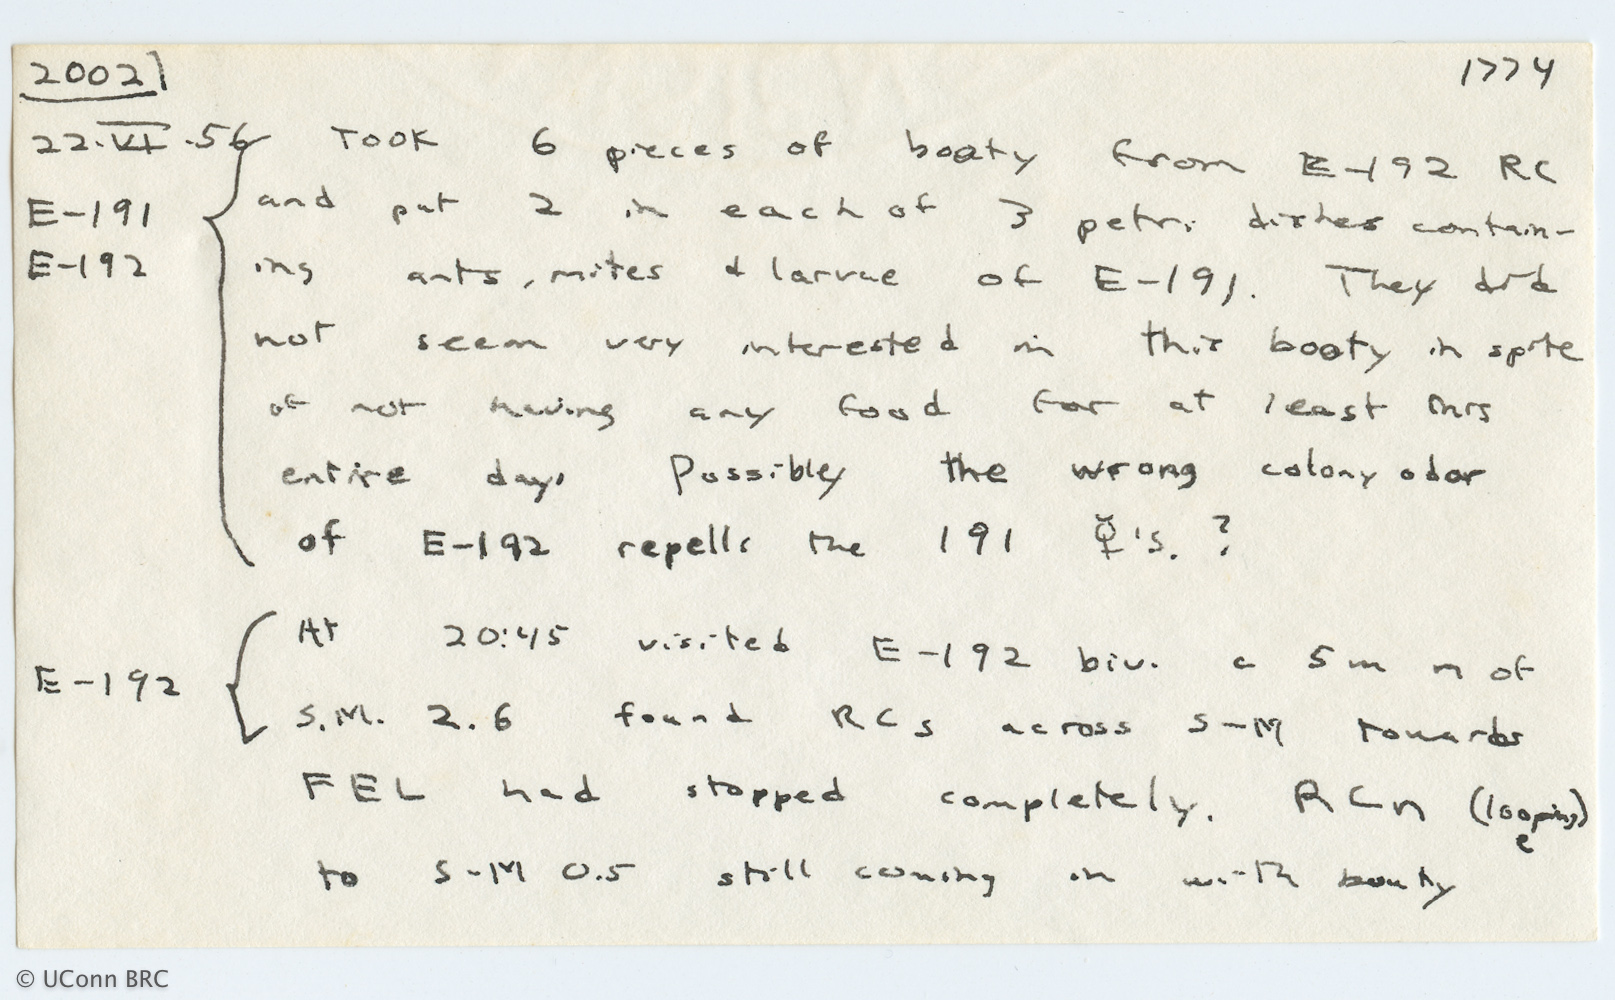 2002] 1774
22.VI.56 Took 6 pieces of booty from E-192 RC
E-191 and put 2 in each of 3 petri dishes contain-
E-192 ing ants, mites & larvae of E-191. They did
not seem very interested in this booty in spite
of not having any food for at least this
entire day. Possibley the wrong colony odor
of E-192 repells the 191 ☿'s. ?
At 20:45 visited E-192 biv. c 5 m n of
E-192 S.M. 2.6 found RCs across S-M towards
FEL had stopped completely. RCn (looping)
e
to S-M 0.5 still coming in with booty
© UConn BRC